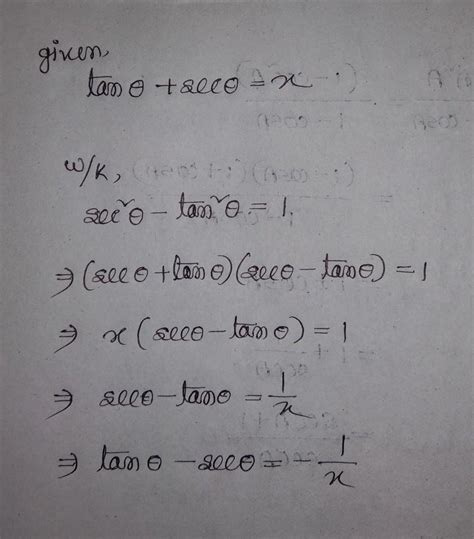 given,
tanθ + secθ = x
w/K,
sec²θ - tan²θ = 1.
⇒ (secθ + tanθ)(secθ - tanθ) = 1
⇒ x (secθ - tanθ) = 1
⇒ secθ - tanθ = 1/x
⇒ tanθ - secθ = - 1/x